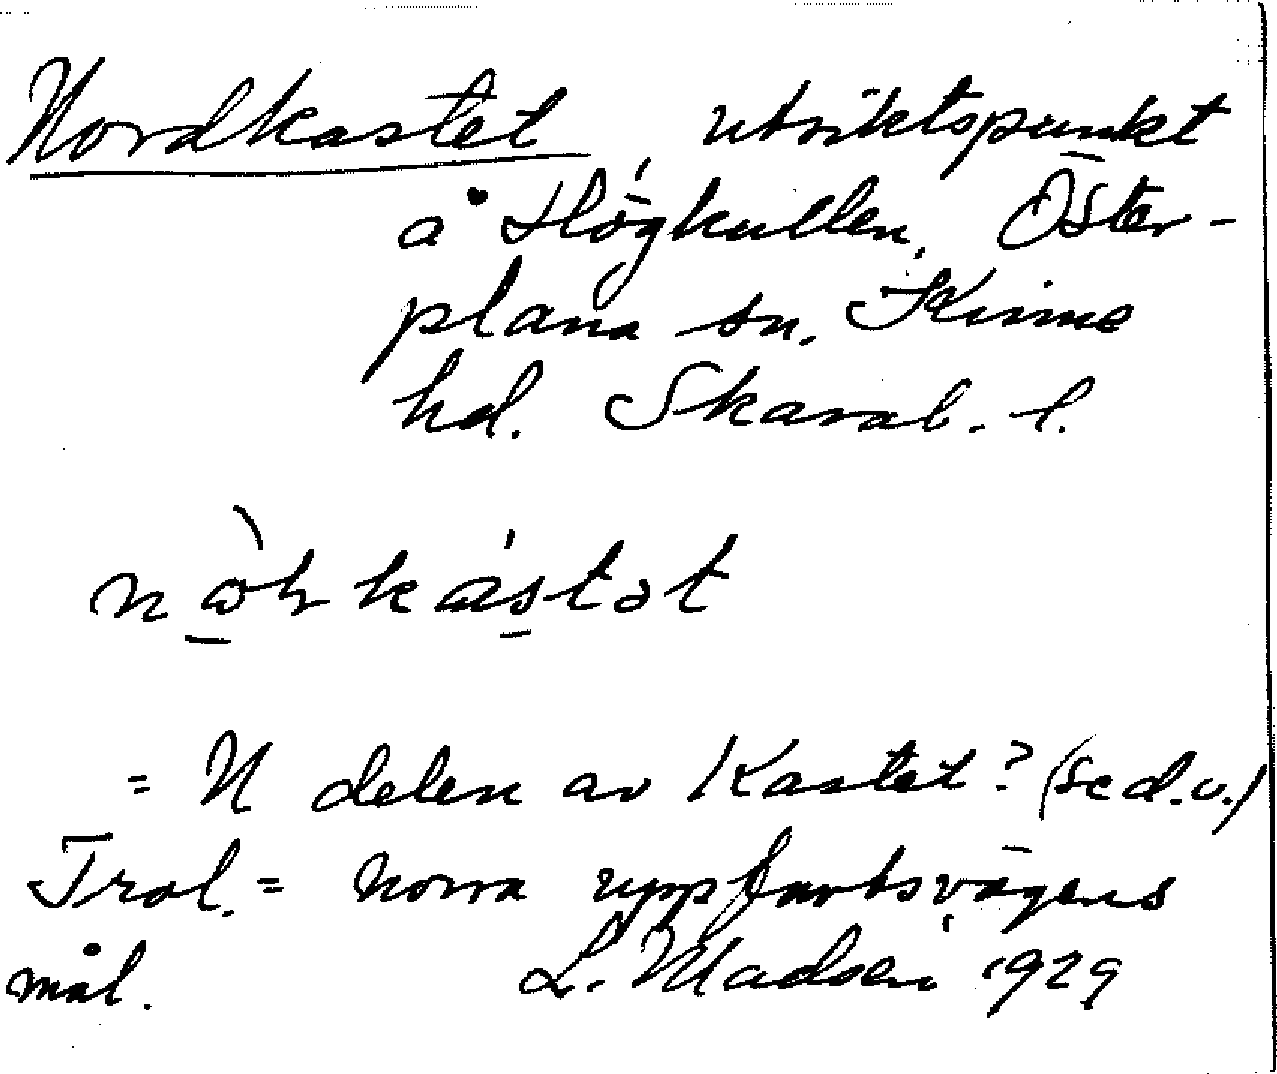 Nordkastet, utsiktspunkt
å Högkullen, Öster-
plana sn. Kinne
hd. Skarab. l.
= N delen av Kastet? (se d.o.)
Trol. = norra uppfartsvägens
mål. L. Madsen 1929